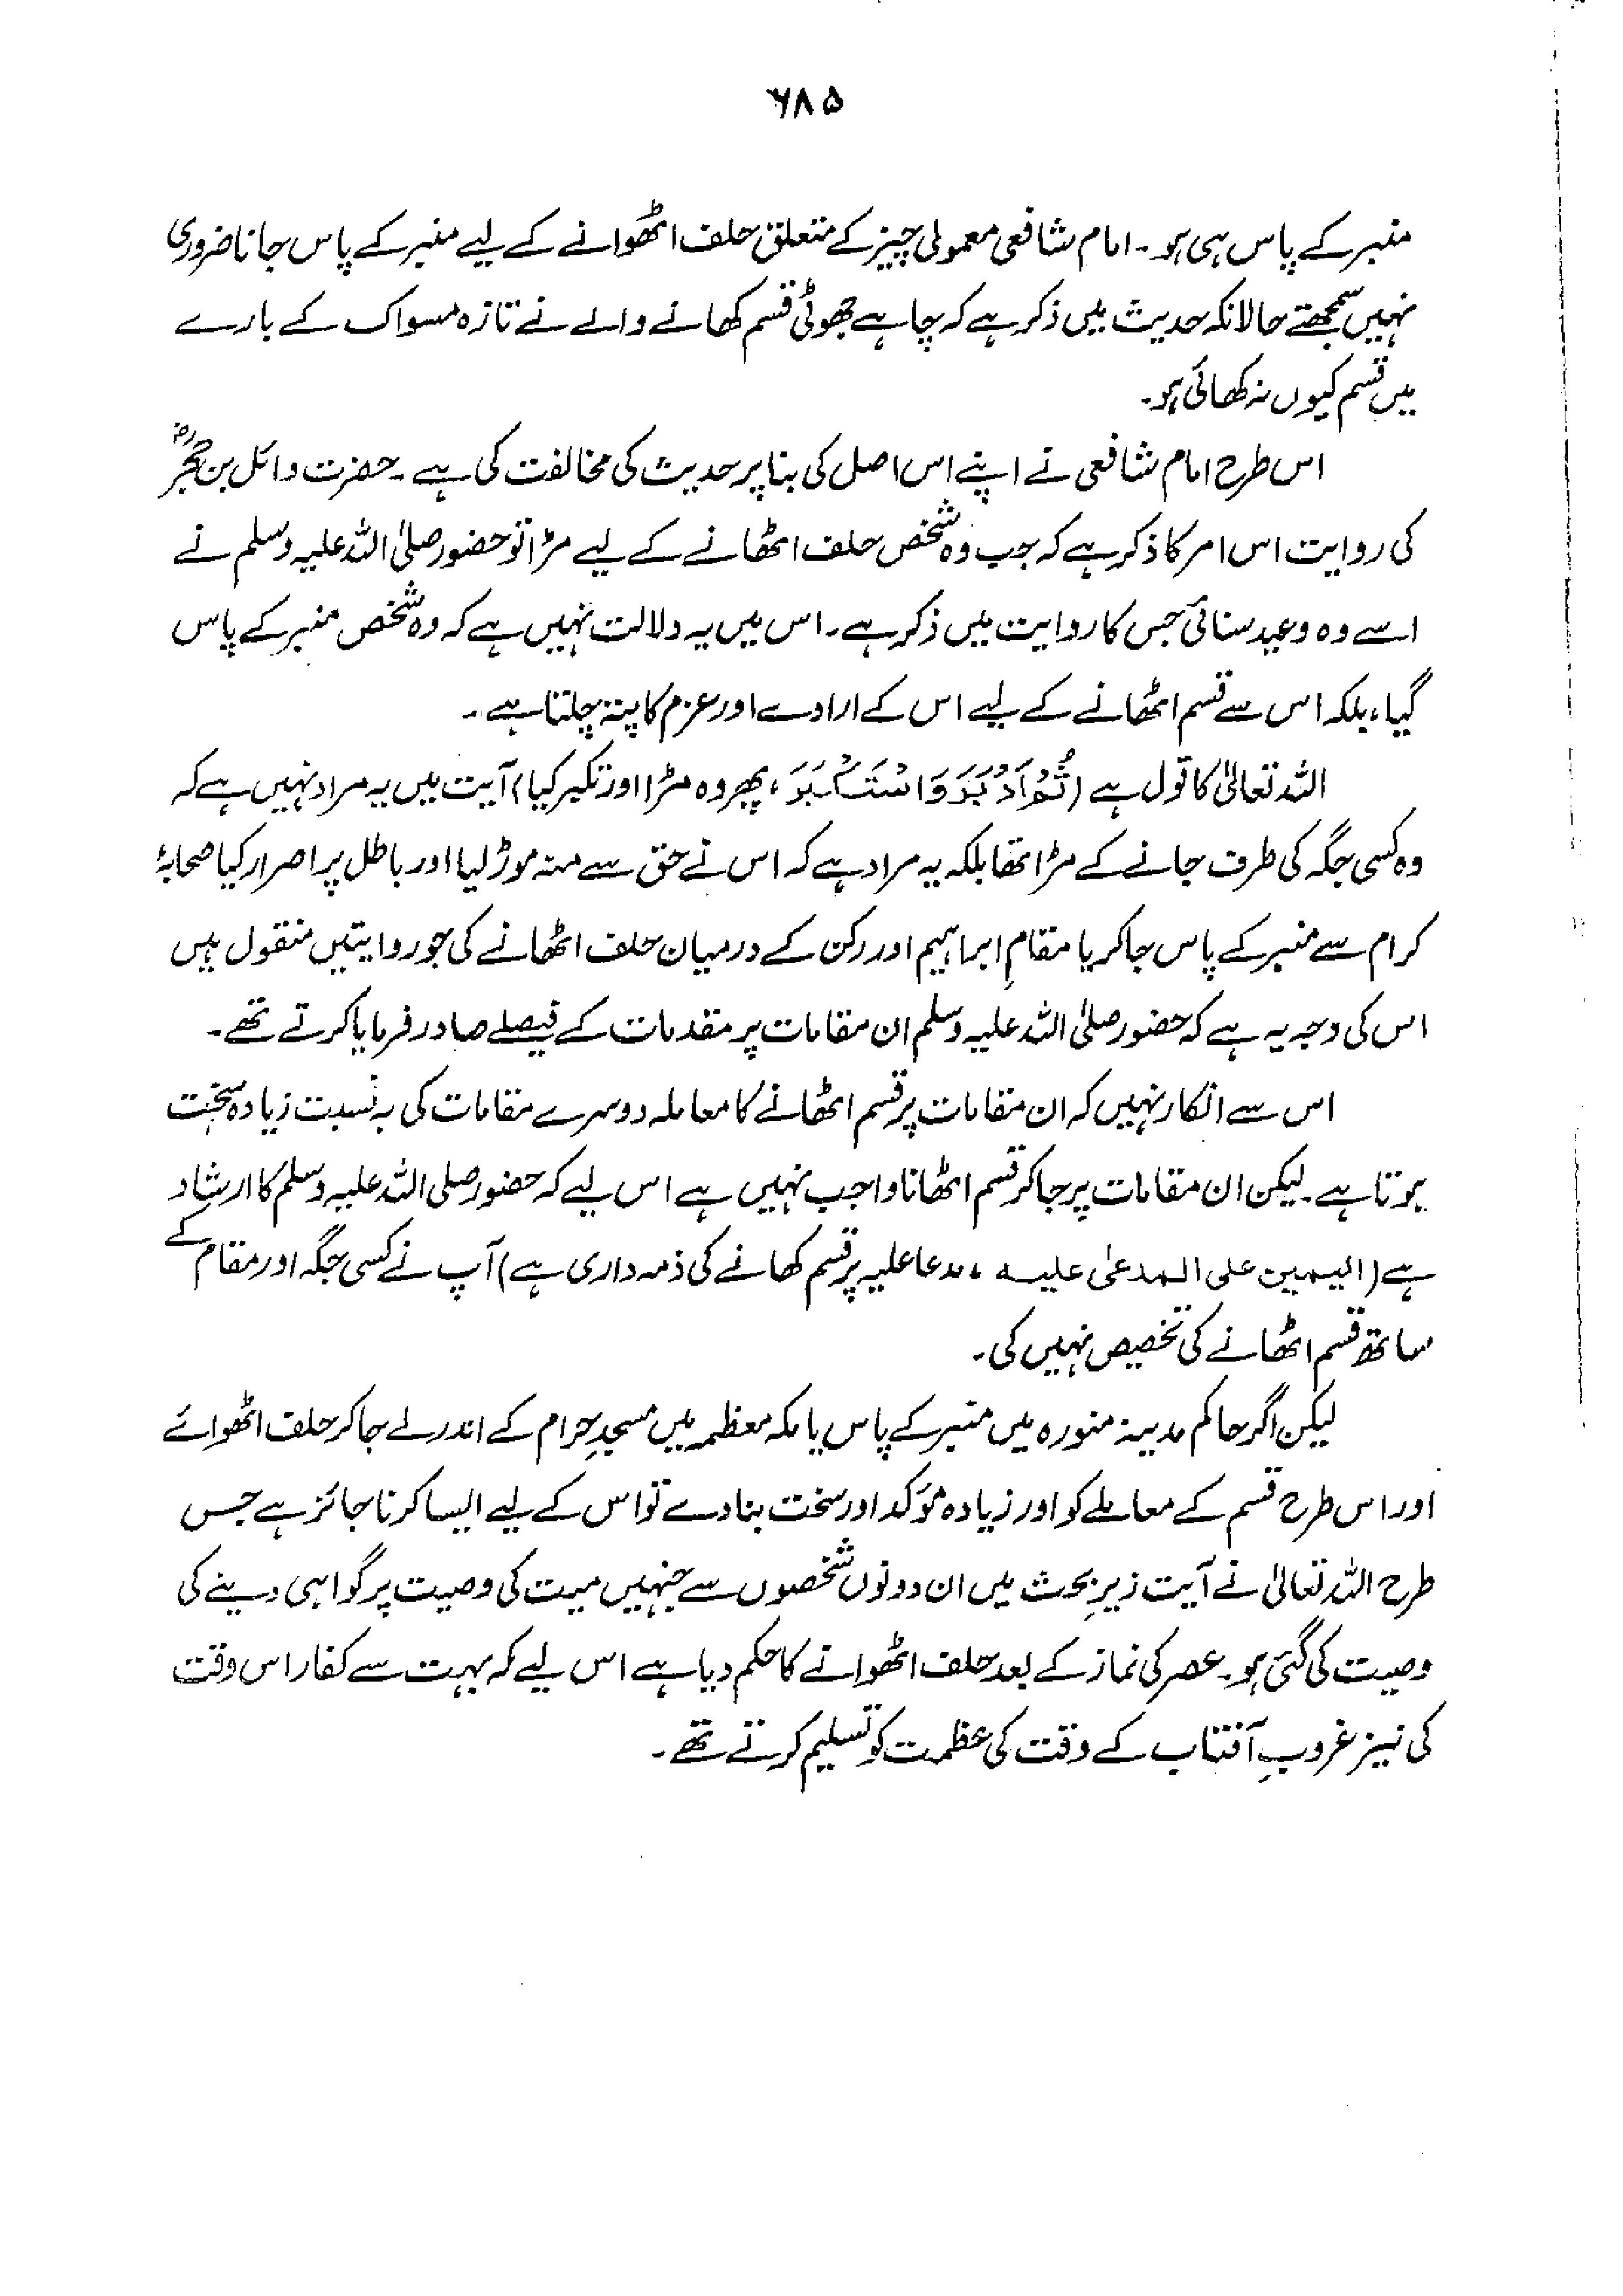 ۶۸۵
منبر کے پاس ہی ہو۔ امام شافعی معمولی چیز کے متعلق حلف اٹھوانے کے لیے منبر کے پاس جانا ضروری
نہیں سمجھتے حالانکہ حدیث میں ذکر ہے کہ چاہے جھوٹی قسم کھانے والے نے تازہ مسواک کے بارے
میں قسم کیوں نہ کھائی ہو۔
اس طرح امام شافعی نے اپنے اس اصل کی بنا پر حدیث کی مخالفت کی ہے۔ حضرت وائل بن حجرؓ
کی روایت اس امر کا ذکر ہے کہ جب وہ شخص حلف اٹھانے کے لیے مڑا تو حضور صلی اللہ علیہ وسلم نے
اسے وہ وعید سنائی جس کا روایت میں ذکر ہے۔ اس میں یہ دلالت نہیں ہے کہ وہ شخص منبر کے پاس
گیا، بلکہ اس سے قسم اٹھانے کے لیے اس کے ارادے اور عزم کا پتہ چلتا ہے۔
اللہ تعالیٰ کا قول ہے (ثُمَّ اَدْبَرَ وَاسْتَكْبَرَ، پھر وہ مڑا اور تکبر کیا) آیت میں یہ مراد نہیں ہے کہ
وہ کسی جگہ کی طرف جانے کے مڑا تھا بلکہ یہ مراد ہے کہ اس نے حق سے منہ موڑ لیا اور باطل پر اصرار کیا صحابۂ
کرام سے منبر کے پاس جا کر یا مقامِ ابراہیم اور رکن کے درمیان حلف اٹھانے کی جو روایتیں منقول ہیں
اس کی وجہ یہ ہے کہ حضور صلی اللہ علیہ وسلم ان مقامات پر مقدمات کے فیصلے صادر فرمایا کرتے تھے۔
اس سے انکار نہیں کہ ان مقامات پر قسم اٹھانے کا معاملہ دوسرے مقامات کی بہ نسبت زیادہ سخت
ہوتا ہے۔ لیکن ان مقامات پر جا کر قسم اٹھانا واجب نہیں ہے اس لیے کہ حضور صلی اللہ علیہ وسلم کا ارشاد
ہے (الیمین علی المدعیٰ علیہ، مدعا علیہ پر قسم کھانے کی ذمہ داری ہے) آپ نے کسی جگہ اور مقام کے
ساتھ قسم اٹھانے کی تخصیص نہیں کی۔
لیکن اگر حاکم مدینہ منورہ میں منبر کے پاس یا مکہ معظمہ میں مسجدِ حرام کے اندر لے جا کر حلف اٹھوائے
اور اس طرح قسم کے معاملے کو اور زیادہ مؤکد اور سخت بنا دے تو اس کے لیے ایسا کرنا جائز ہے جس
طرح اللہ تعالیٰ نے آیت زیرِ بحث میں ان دونوں شخصوں سے جنہیں میت کی وصیت پر گواہی دینے کی
وصیت کی گئی ہو۔ عصر کی نماز کے بعد حلف اٹھوانے کا حکم دیا ہے اس لیے کہ بہت سے کفار اس وقت
کی نیز غروبِ آفتاب کے وقت کی عظمت کو تسلیم کرتے تھے۔